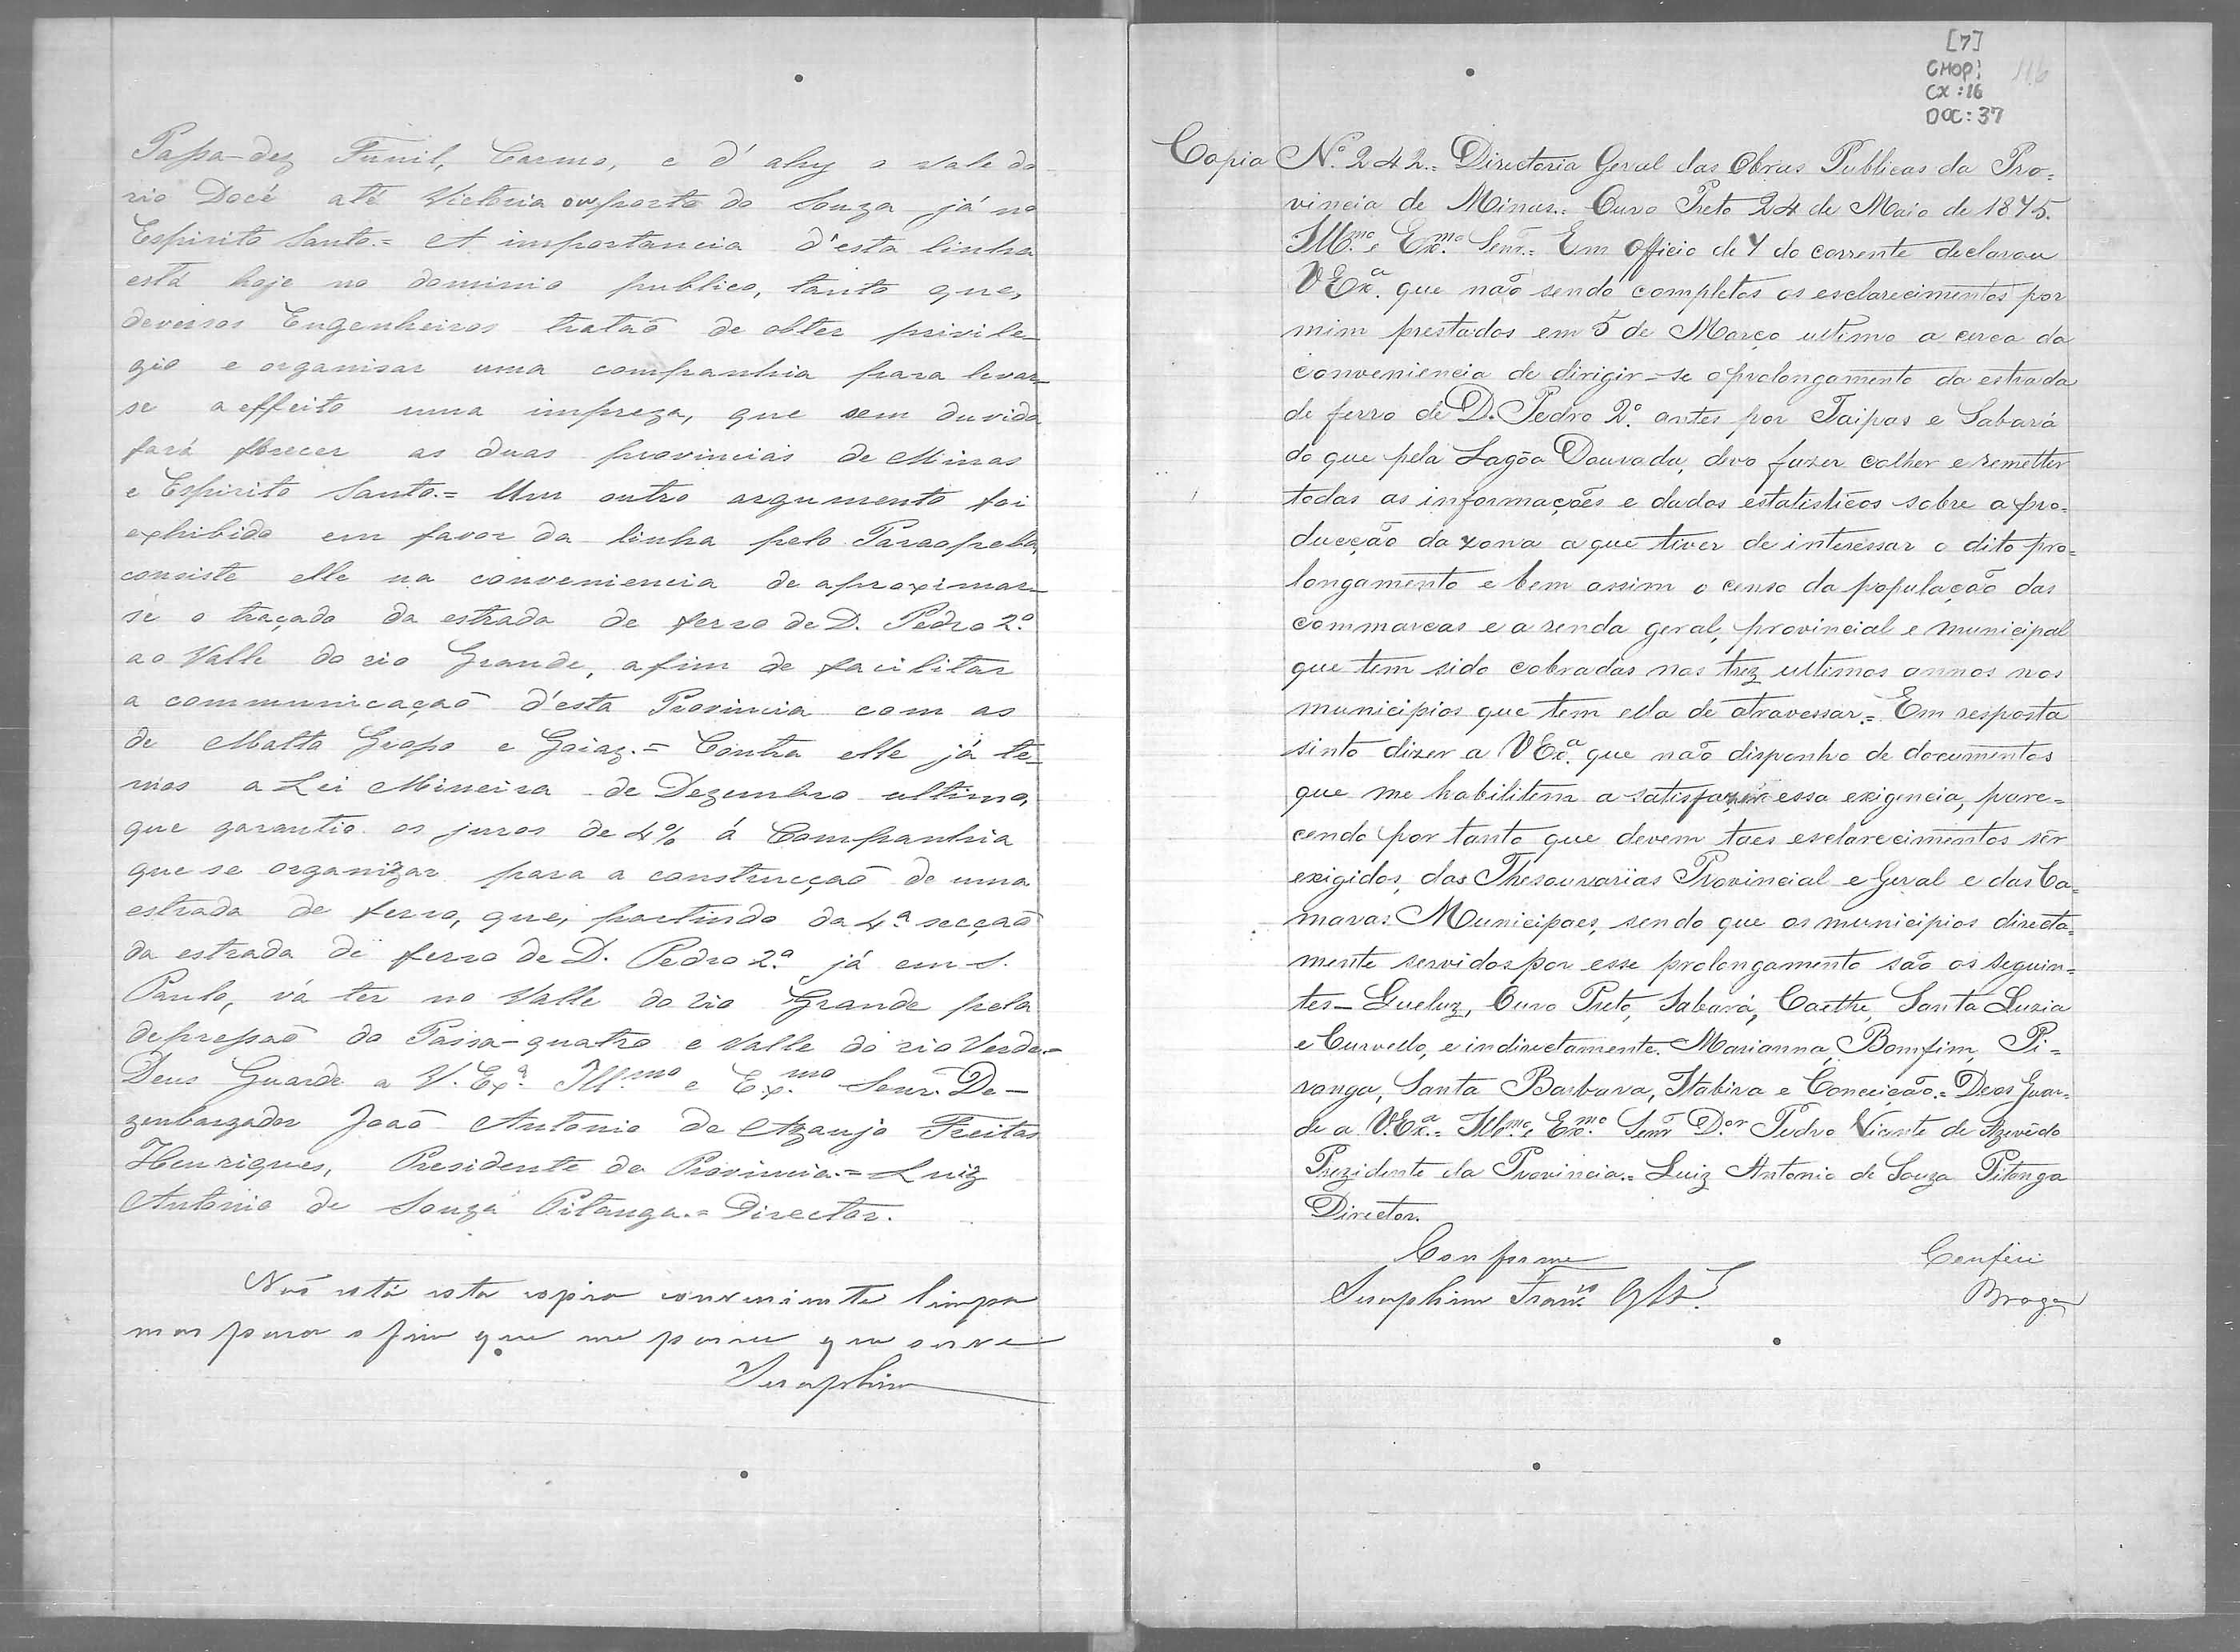 Passa-dez Funil, Carmo, e d'ahy o valle do
rio Doce até Victoria ou porto do Souza já no
Espirito Santo.= A importancia d'esta linha
está hoje no dominio publico, tanto que,
deversos Engenheiros tratão de obter privile-
gio e organisar uma companhia para levar-
se a effeito uma impreza, que sem duvida
fará florecer as duas provincias de Minas
e Espirito Santo.= Um outro argumento foi
exhibido em favor da linha pelo Paraopeba,
consiste elle na conveniencia de aproximar-
se o traçado da estrada de ferro de D. Pedro 2.º
ao Valle do rio Grande, afim de facilitar
a communicação d'esta Provincia com as
de Matto Grosso e Goiaz.= Contra elle já te-
mos a Lei Mineira de Dezembro ultimo,
que garantio os juros de 4% á Companhia
que se organizar para a construcção de uma
estrada de ferro, que, partindo da 4.ª secção
da estrada de ferro de D. Pedro 2.º já em S.
Paulo, vá ter no Valle do rio Grande pela
depressão do Passa-quatro e Valle do rio Verde.=
Deus Guarde a V. Ex.ª Ill.mo e Ex.mo Senr. De-
zembargador João Antonio de Araujo Freitas
Henriques, Presidente da Provincia.= Luiz
Antonio de Souza Pitanga.= Director.
Não está esta copia conveniente limpa
mas para o fim que me parece que serve
Seraphim
[7]
CMOP:
CX:16
DOC:37
116
Copia N.º 242.= Directoria Geral das Obras Publicas da Pro=
vincia de Minas.= Ouro Preto 24 de Maio de 1875.
Ill.mo e Ex.mo Senr.= Em Officio de 7 do corrente declarou
V Ex.ª que não sendo completos os esclarecimentos por
mim prestados em 5 de Março ultimo a cerca da
conveniencia de dirigir-se o prolongamento da estrada
de ferro de D. Pedro 2.º antes por Taipas e Sabará
do que pela Lagôa Dourada, devo fazer colher e remetter
todas as informações e dados estatisticos sobre a pro=
ducção da zona a que tiver de interessar o dito pro=
longamento e bem assim o censo da população das
commarcas e a renda geral, provincial e municipal
que tem sido cobradas nos trez ultimos annos nos
municipios que tem ella de atravessar.= Em resposta
sinto dizer a V Ex.ª que não disponho de documentos
que me habilitem a satisfazer essa exigencia, pare=
cendo por tanto que devem taes esclarecimentos sêr
exigidos, das Thesourarias Provincial e Geral e das Ca=
maras Municipaes, sendo que os municipios directa=
mente servidos por esse prolongamento são os seguin=
tes_ Queluz, Ouro Preto, Sabará, Caethe, Santa Luzia
e Curvello, e indirectamente. Marianna, Bomfim, Pi=
ranga, Santa Barbara, Itabira e Conceição.= Deos Guar=
de a V.Ex.ª= Ill.mo e Ex.mo Senr D.or Pedro Vicente de Azevêdo
Prezidente da Provincia.= Luiz Antonio de Souza Pitanga
Director.
Conforme Conferi
Seraphim Fran.co Braga